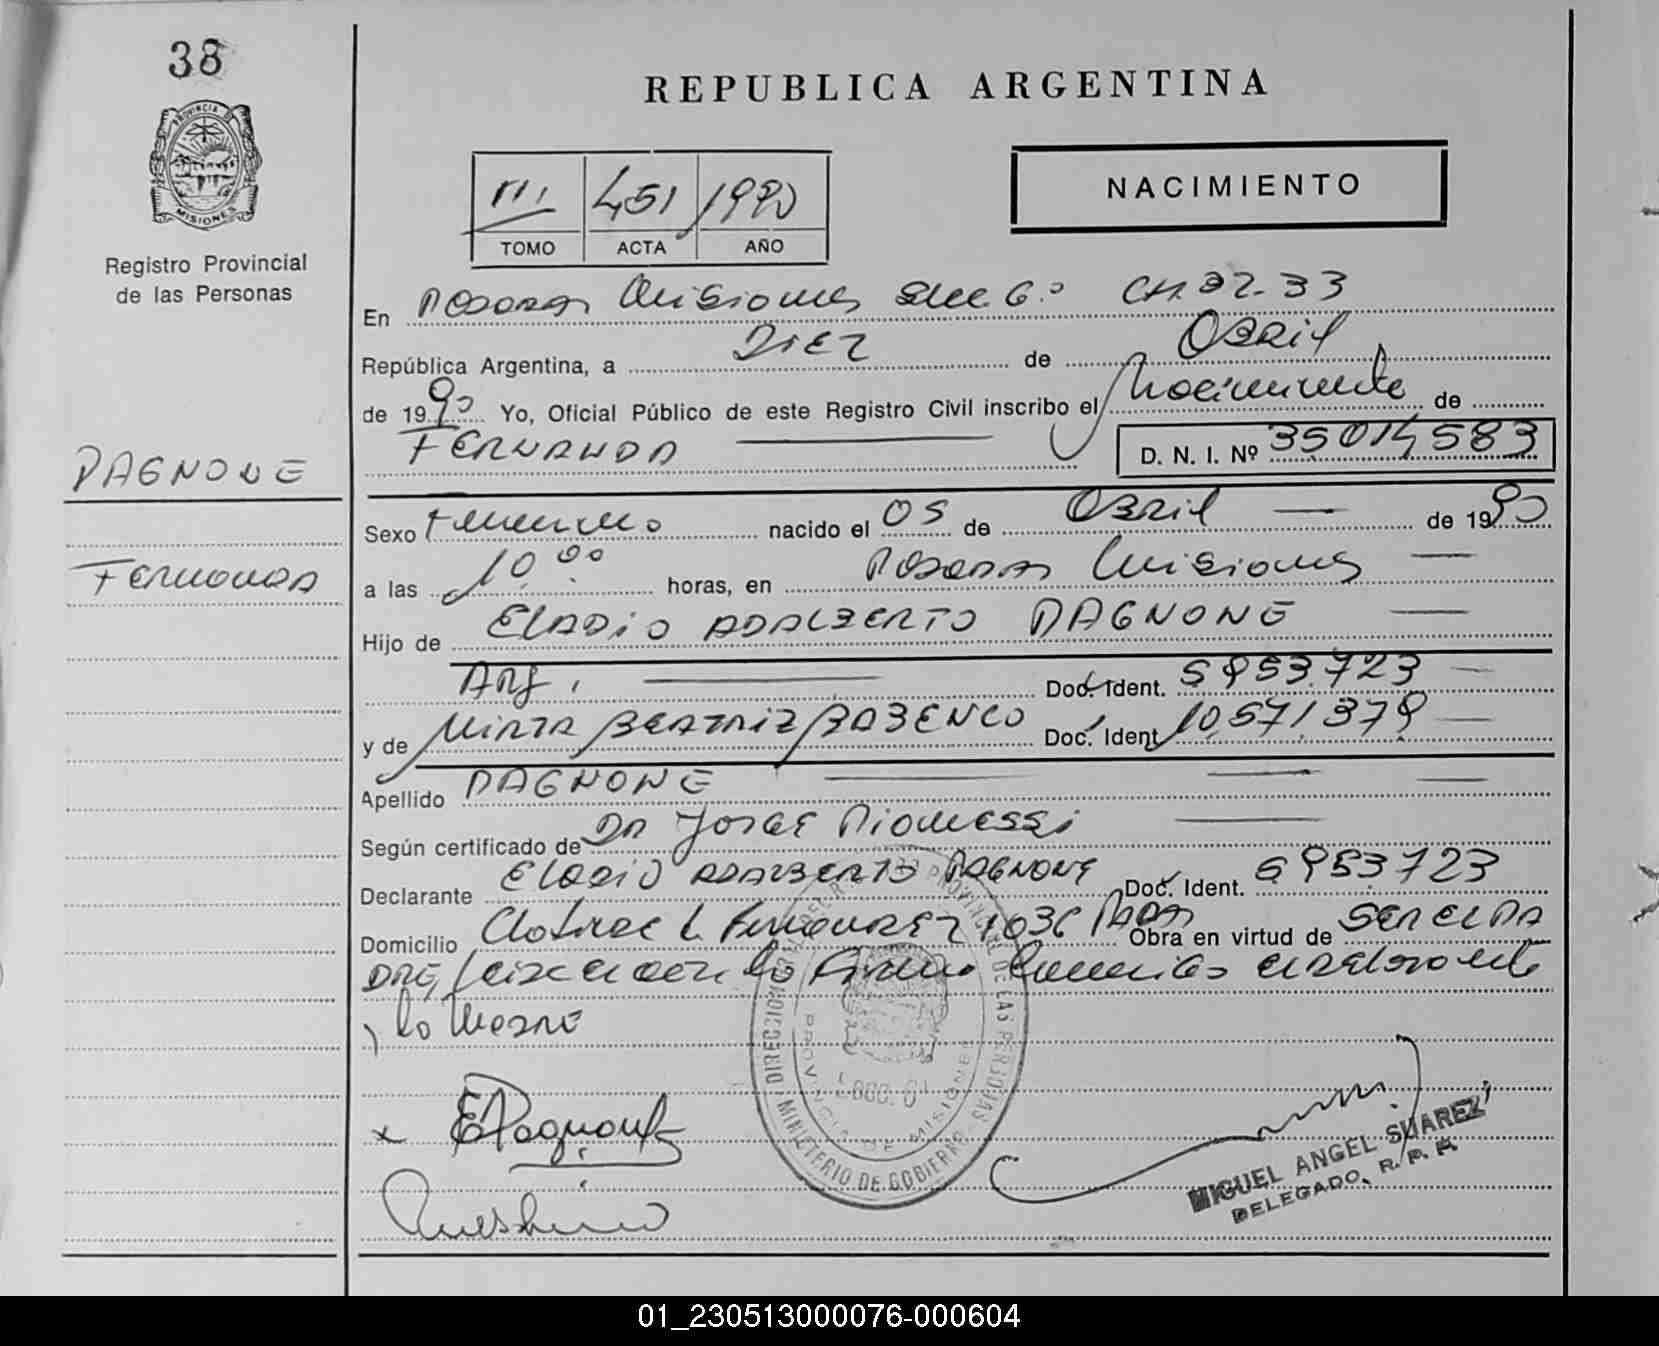 38
PROVINCIA DE
MISIONES
Registro Provincial
de las Personas
PAGNONE
FERNANDA
REPUBLICA ARGENTINA
III 451 1990
TOMO ACTA AÑO
NACIMIENTO
En Posadas Misiones Secc. 6º CH. 32-33
República Argentina, a Diez de Abril
de 1990 Yo, Oficial Público de este Registro Civil inscribo el Nacimiento de
FERNANDA D. N. I. Nº 35014583
Sexo Femenino nacido el 05 de Abril de 1990
a las 10,00 horas, en Posadas Misiones
Hijo de ELADIO ADALBERTO PAGNONE
Arg. Doc. Ident. 5953.723
y de MIRTA BEATRIZ BABENCO Doc. Ident 10.571.379
Apellido PAGNONE
Según certificado de Dr JORGE
Declarante ELADIO ADALBERTO PAGNONE Doc. Ident. 5953723
Domicilio L. 1036 Obra en virtud de SER EL PA
DRE, la
MINISTERIO DE GOBIERNO
PROVINCIA DE MISIONES
MIGUEL ANGEL SUAREZ
DELEGADO, R. P. P.
01_230513000076-000604